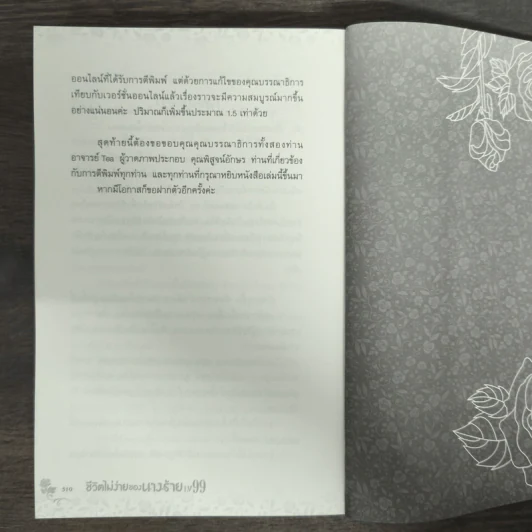 ออนไลน์ที่ได้รับการตีพิมพ์ แต่ด้วยการแก้ไขของคุณบรรณาธิการ
เทียบกับเวอร์ชั่นออนไลน์แล้วเรื่องราวจะมีความสมบูรณ์มากขึ้น
อย่างแน่นอนค่ะ ปริมาณก็เพิ่มขึ้นประมาณ 1.5 เท่าด้วย
สุดท้ายนี้ต้องขอขอบคุณคุณบรรณาธิการทั้งสองท่าน
อาจารย์ Tea ผู้วาดภาพประกอบ คุณพิสูจน์อักษร ท่านที่เกี่ยวข้อง
กับการตีพิมพ์ทุกท่าน และทุกท่านที่กรุณาหยิบหนังสือเล่มนี้ขึ้นมา
หากมีโอกาสก็ขอฝากตัวอีกครั้งค่ะ
ชีวิตไม่ง่ายของนางร้าย LV99